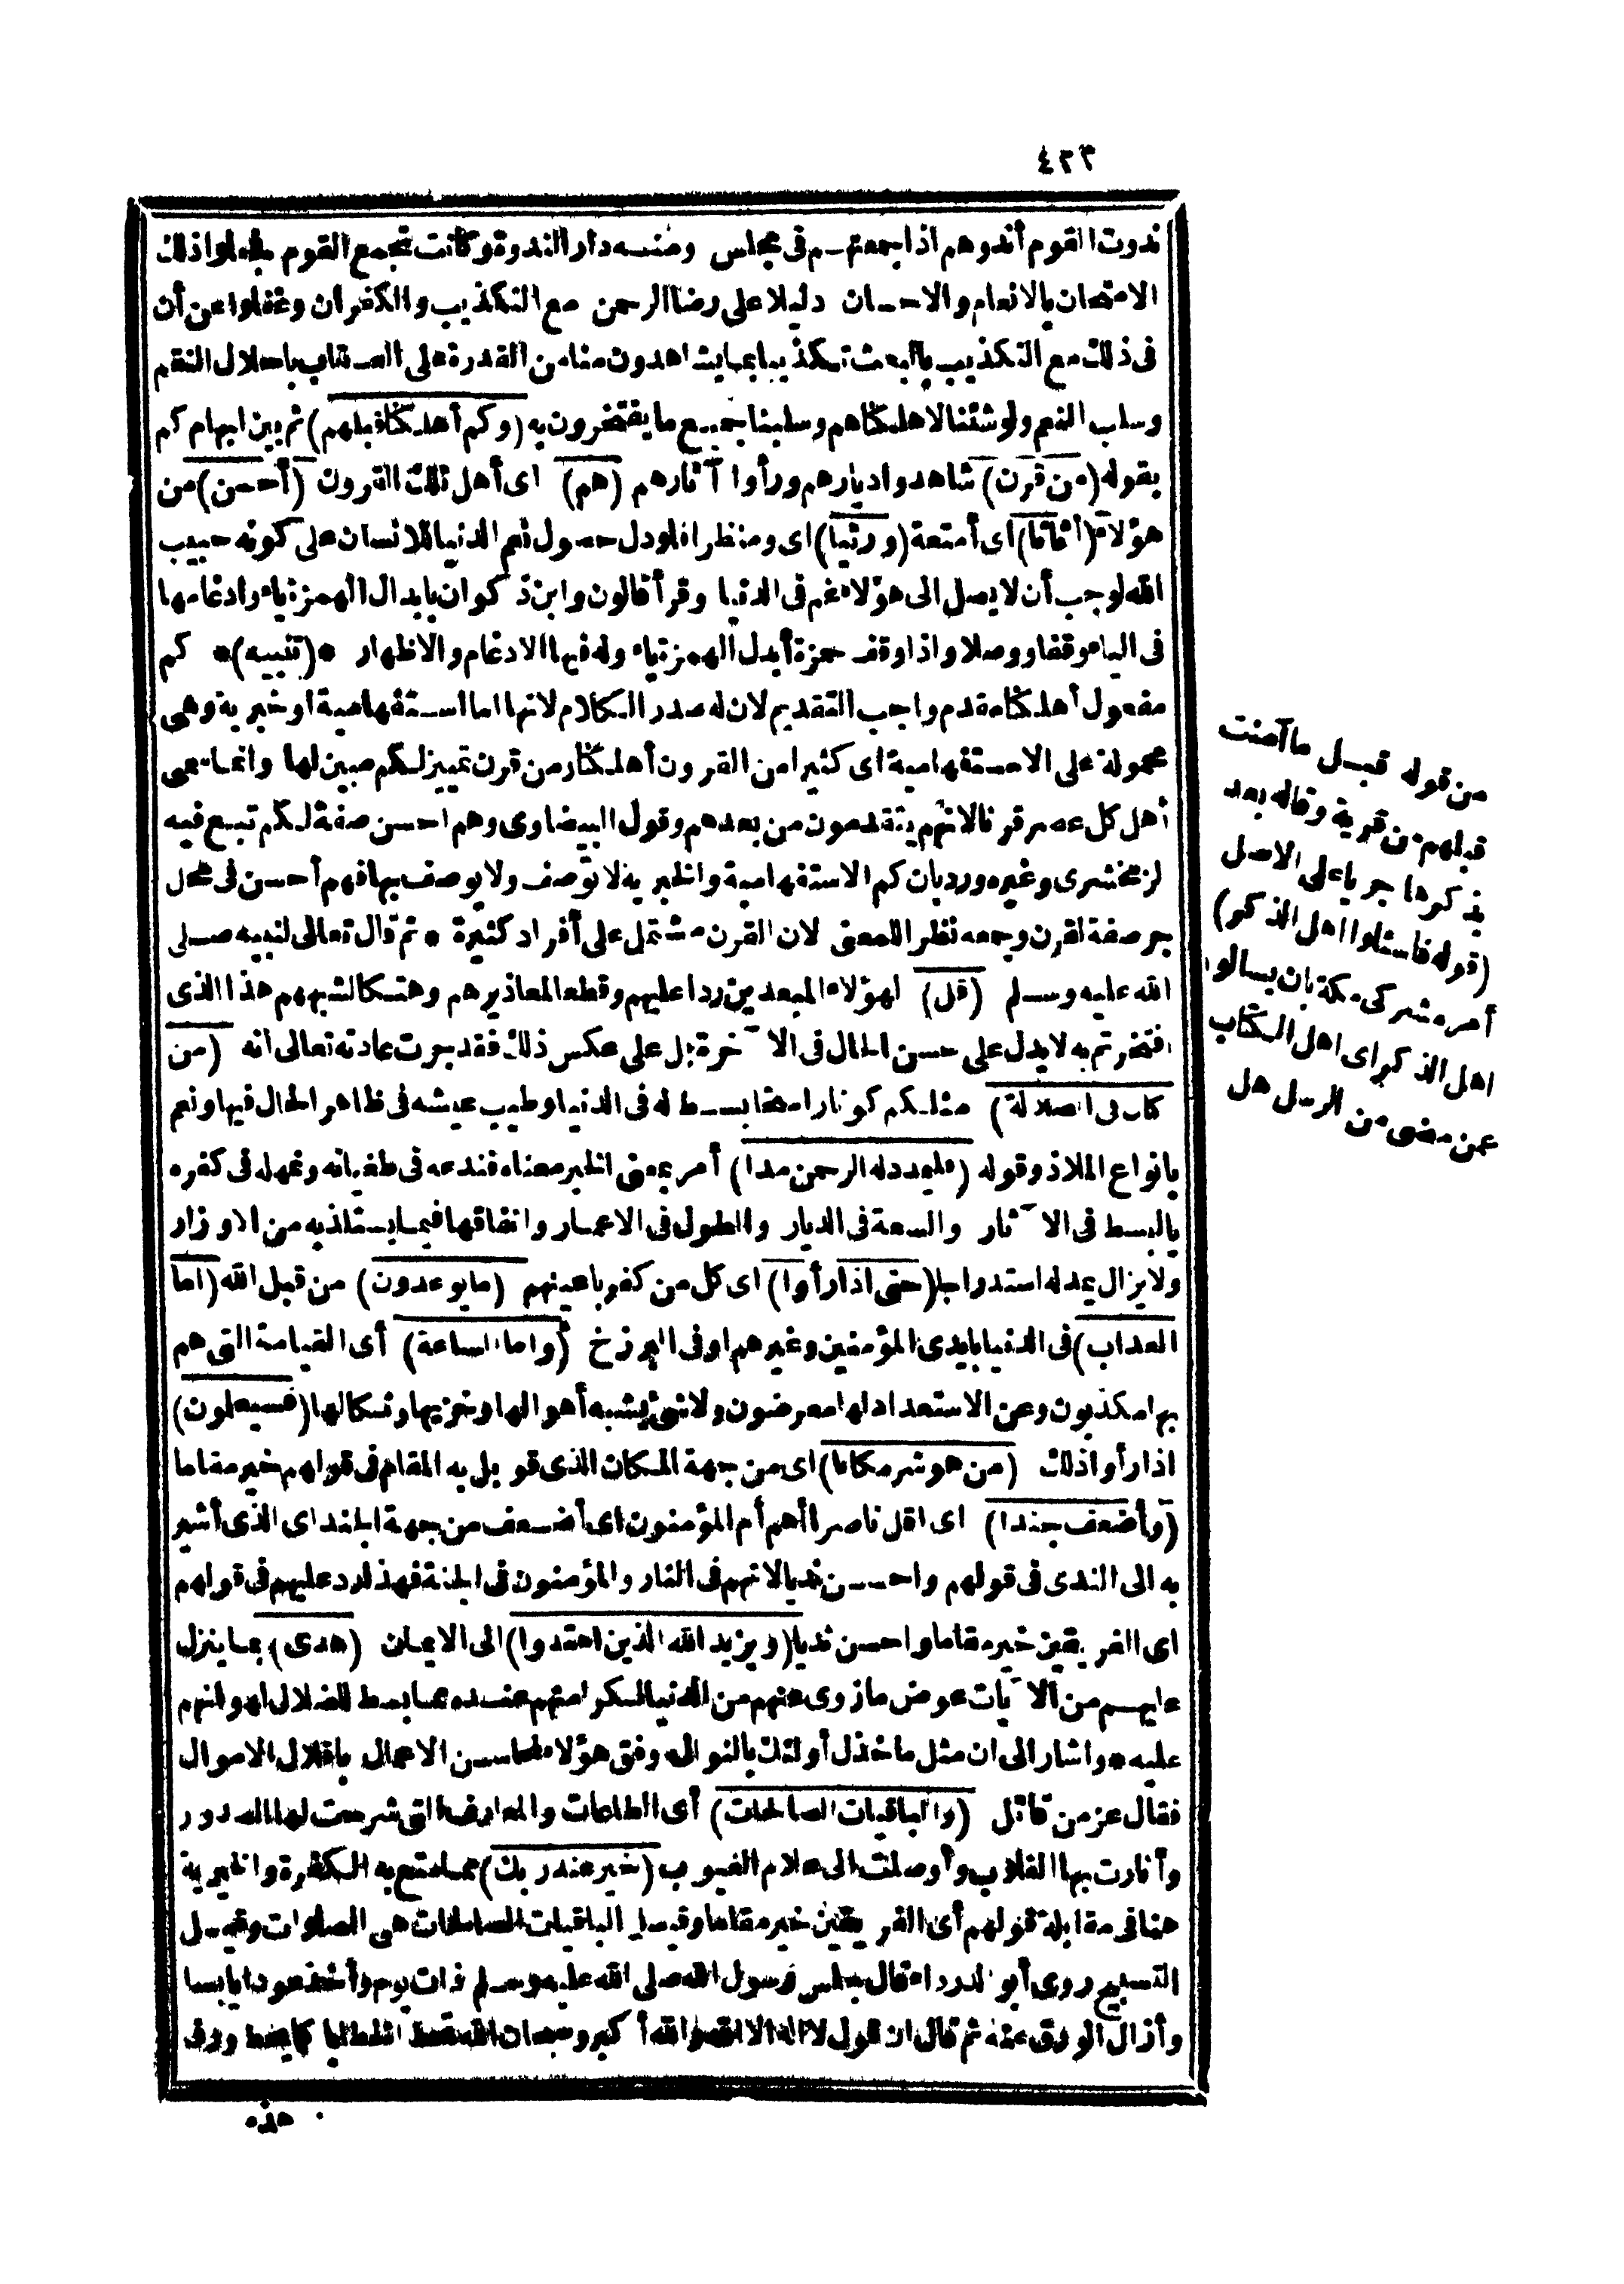 ٤٢٣
ندوت القوم أندوهم اذا جمعتهم فى مجلس ومنه دار الندوة وكانت تجمع القوم فجعلوا ذلك
الامتحان بالانعام والاحسان دليلا على رضا الرحمن مع التكذيب والكفران وغفلوا عن أن
فى ذلك مع التكذيب بالبعث تكذيبا بما يشاهدون منا من القدرة على العذاب باحلال النقم
وسلب النعم ولو شئنا لاهلكناهم وسلبنا جميع ما يفتخرون به (وكم أهلكنا قبلهم) ثم بين ابهام كم
بقوله (من قرن) شاهدوا ديارهم ورأوا آثارهم (هم) اى أهل تلك القرون (أحسن) من
هؤلاء (أثاثا) اى أمتعة (ورئيا) اى ومنظرا فلو دل حصول نعم الدنيا للانسان على كونه حبيب
الله لوجب أن لا يصل الى هؤلاء غم فى الدنيا وقرأ قالون وابن ذكوان بابدال الهمزة ياء وادغامها
فى الياء وقفا ووصلا واذا وقف حمزة أبدل الهمزة ياء وله فيها الادغام والاظهار *(تنبيه)* كم
مفعول أهلكنا مقدم واجب التقديم لان له صدر الكلام لانها اما استفهامية او خبرية وهى
محمولة على الاستفهامية اى كثيرا من القرون أهلكنا ومن قرن تمييز لكم مبين لها وانما سمى
أهل كل عصر قرنا لانهم يتقدمون من بعدهم وقول البيضاوى وهم احسن صفة لكم تبع فيه
الزمخشرى وغيره ورد بان كم الاستفهامية والخبرية لا توصف ولا يوصف بها فهم أحسن فى محل
جر صفة لقرن وجمعه نظرا للمعنى لان القرن مشتمل على أفراد كثيرة * ثم قال تعالى لنبيه صلى
الله عليه وسلم (قل) لهؤلاء المبعدين ردا عليهم وقطعا لمعاذيرهم وهتكا لشبههم هذا الذى
افتخرتم به لا يدل على حسن الحال فى الآخرة بل على عكس ذلك فقد جرت عادته تعالى انه (من
كان فى الضلالة) مثلكم كونا راسخا بسط له فى الدنيا وطيب عيشه فى ظاهر الحال فيها ونعم
بانواع الملاذ وقوله (فليمدد له الرحمن مدا) أمر بمعنى الخبر معناه فندعه فى طغيانه ونمهله فى كفره
بالبسط فى الآثار والسعة فى الديار والطول فى الاعمار وانفاقها فيما يستلذ به من الاوزار
ولا يزال يمد له استدراجا (حتى اذا رأوا) اى كل من كفر باعينهم (ما يوعدون) من قبل الله (اما
العذاب) فى الدنيا بايدى المؤمنين وغيرهم او فى البرزخ (واما الساعة) أى القيامة التى هم
بها مكذبون وعن الاستعداد لها معرضون ولا شئ يشبه أهوالها وخزيها ونكالها (فسيعلمون)
اذا رأوا ذلك (من هو شر مكانا) اى من جهة المكان الذى قوبل به المقام فى قولهم خير مقاما
(وأضعف جندا) اى اقل ناصرا أهم أم المؤمنون اى أضعف من جهة الجند اى الذى أشير
به الى الندى فى قولهم واحسن نديا لانهم فى النار والمؤمنون فى الجنة فهذا رد عليهم فى قولهم
اى الفريقين خير مقاما واحسن نديا (ويزيد الله الذين اهتدوا) الى الايمان (هدى) بما ينزل
عليهم من الآيات عوض ما زوى عنهم من الدنيا لكرامتهم عنده مما بسط للضلال لهوانهم
عليه * واشار الى ان مثل ما خذل أولئك بالنوال وفق هؤلاء لمحاسن الاعمال باقلال الاموال
فقال عز من قائل (والباقيات الصالحات) أى الطاعات والمعارف التى شرحت لها الصدور
وأنارت بها القلوب وأوصلت الى علام الغيوب (خير عند ربك) مما متع به الكفرة والخيرية
هنا فى مقابلة قولهم أى الفريقين خير مقاما وقيل الباقيات الصالحات هى الصلوات وقيل
التسبيح روى أبو الدرداء قال جلس رسول الله صلى الله عليه وسلم ذات يوم وأخذ عودا يابسا
وأزال الورق عنه ثم قال ان قول لا اله الا الله والله أكبر وسبحان الله تحط الخطايا كما يحط ورق
هذه
من قوله قبل ما آمنت
قبلهم من قرية وقاله بعد
بذكرها جريا على الاصل
(قوله فاسئلوا اهل الذكر)
أمر مشركى مكة بان يسالوا
اهل الذكر اى اهل الكتاب
عمن مضى من الرسل هل